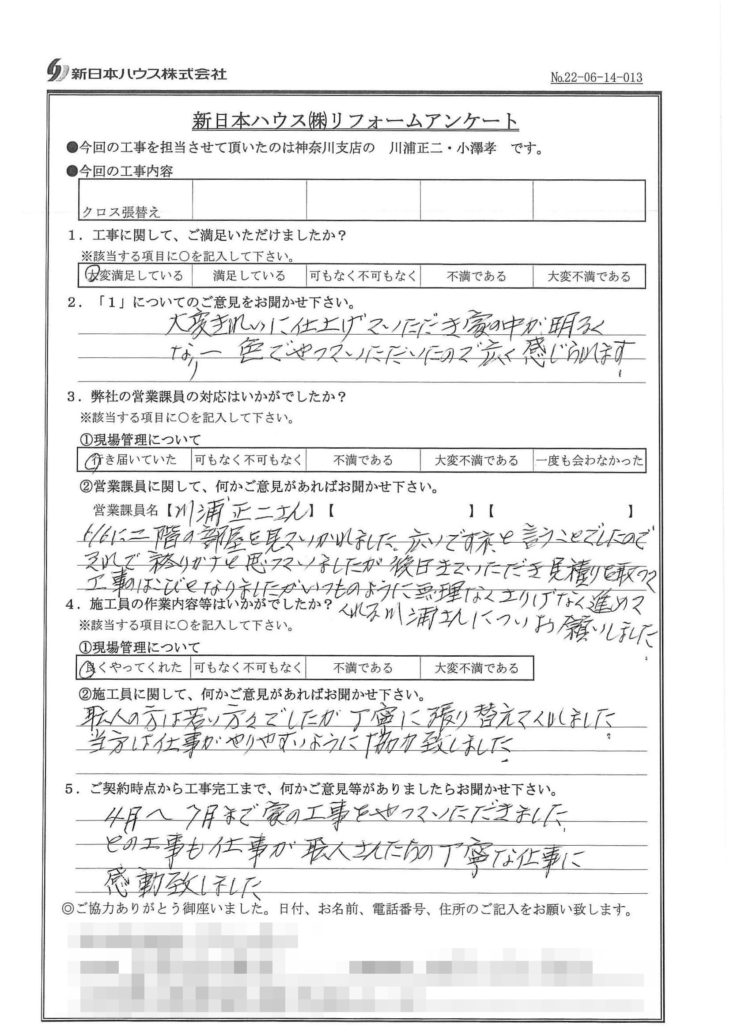 新日本ハウス株式会社
№22-06-14-013
新日本ハウス㈱リフォームアンケート
●今回の工事を担当させて頂いたのは神奈川支店の 川浦正二・小澤孝 です。
●今回の工事内容
クロス張替え
1．工事に関して、ご満足いただけましたか？
※該当する項目に○を記入して下さい。
大変満足している 満足している 可もなく不可もなく 不満である 大変不満である
2．「1」についてのご意見をお聞かせ下さい。
大変きれいに仕上げていただき家の中が明るく
なり一色でやっていただいたので広く感じられます。
3．弊社の営業課員の対応はいかがでしたか？
※該当する項目に○を記入して下さい。
①現場管理について
行き届いていた 可もなく不可もなく 不満である 大変不満である 一度も会わなかった
②営業課員に関して、何かご意見があればお聞かせ下さい。
営業課員名【川浦正二さん】【 】【 】
6/6に二階の部屋を見ていかれました。広いですネと言うことでしたので
それで終りかナと思っていましたが後日きていただき見積りを取って
工事のはこびとなりましたがいつものように無理なくさりげなく進めて
くれる川浦さんについお願いしました。
4．施工員の作業内容等はいかがでしたか？
※該当する項目に○を記入して下さい。
①現場管理について
良くやってくれた 可もなく不可もなく 不満である 大変不満である
②施工員に関して、何かご意見があればお聞かせ下さい。
職人の方は若い方々でしたが丁寧に張り替えてくれました。
当方は仕事がやりやすいように協力致しました。
5．ご契約時点から工事完工まで、何かご意見等がありましたらお聞かせ下さい。
4月〜7月まで家の工事をやっていただきました。
どの工事も仕事が職人さんたちの丁寧な仕事に
感動致しました
◎ご協力ありがとう御座いました。日付、お名前、電話番号、住所のご記入をお願い致します。